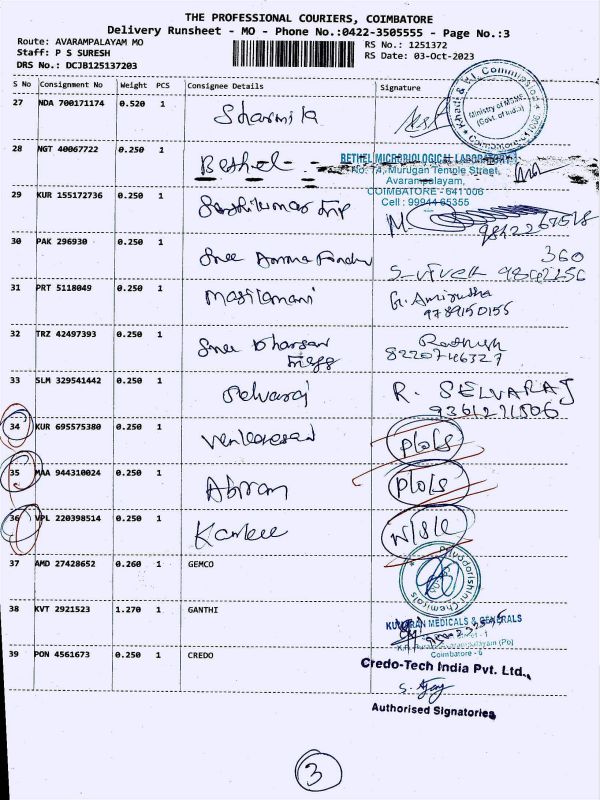 THE PROFESSIONAL COURIERS, COIMBATORE
Delivery Runsheet - MO - Phone No.:0422-3505555 - Page No.:3
Route: AVARAMPALAYAM MO
RS No.: 1251372
Staff: P S SURESH
RS Date: 03-Oct-2023
DRS No.: DCJB125137203
S No Consignment No Weight PCS Consignee Details Signature
27 NDA 700171174 0.520 1 Sharmila
Khadi & V.I. Commission
Ministry of MSME
(Govt. of India)
28 NGT 40067722 0.250 1 Bethel
BETHEL MICROBIOLOGICAL LABORATORY
No: 7A, Murugan Temple Street,
Avarampalayam,
COIMBATORE - 641 006
Cell : 99944 65355
29 KUR 155172736 0.250 1
30 PAK 296930 0.250 1 Sree Amma
360
S-Vivek
31 PRT 5118049 0.250 1 Masilamani G. Amirutha
9789150155
32 TRZ 42497393 0.250 1 Sree Dharsan
8220746327
33 SLM 329541442 0.250 1 Selvaraj R. SELVARAJ
9361271506
34 KUR 695575380 0.250 1 Venkatesan P/O/S
35 MAA 944310024 0.250 1 Abiram P/O/S
36 VPL 220398514 0.250 1 N/S/R
37 AMD 27428652 0.260 1 GEMCO
Priyadarshini Chemicals
38 KVT 2921523 1.270 1 GANTHI
KUMARAN MEDICALS & GENERALS
Coimbatore - 6
39 PON 4561673 0.250 1 CREDO
Credo-Tech India Pvt. Ltd.,
S. Ajay
Authorised Signatories
3